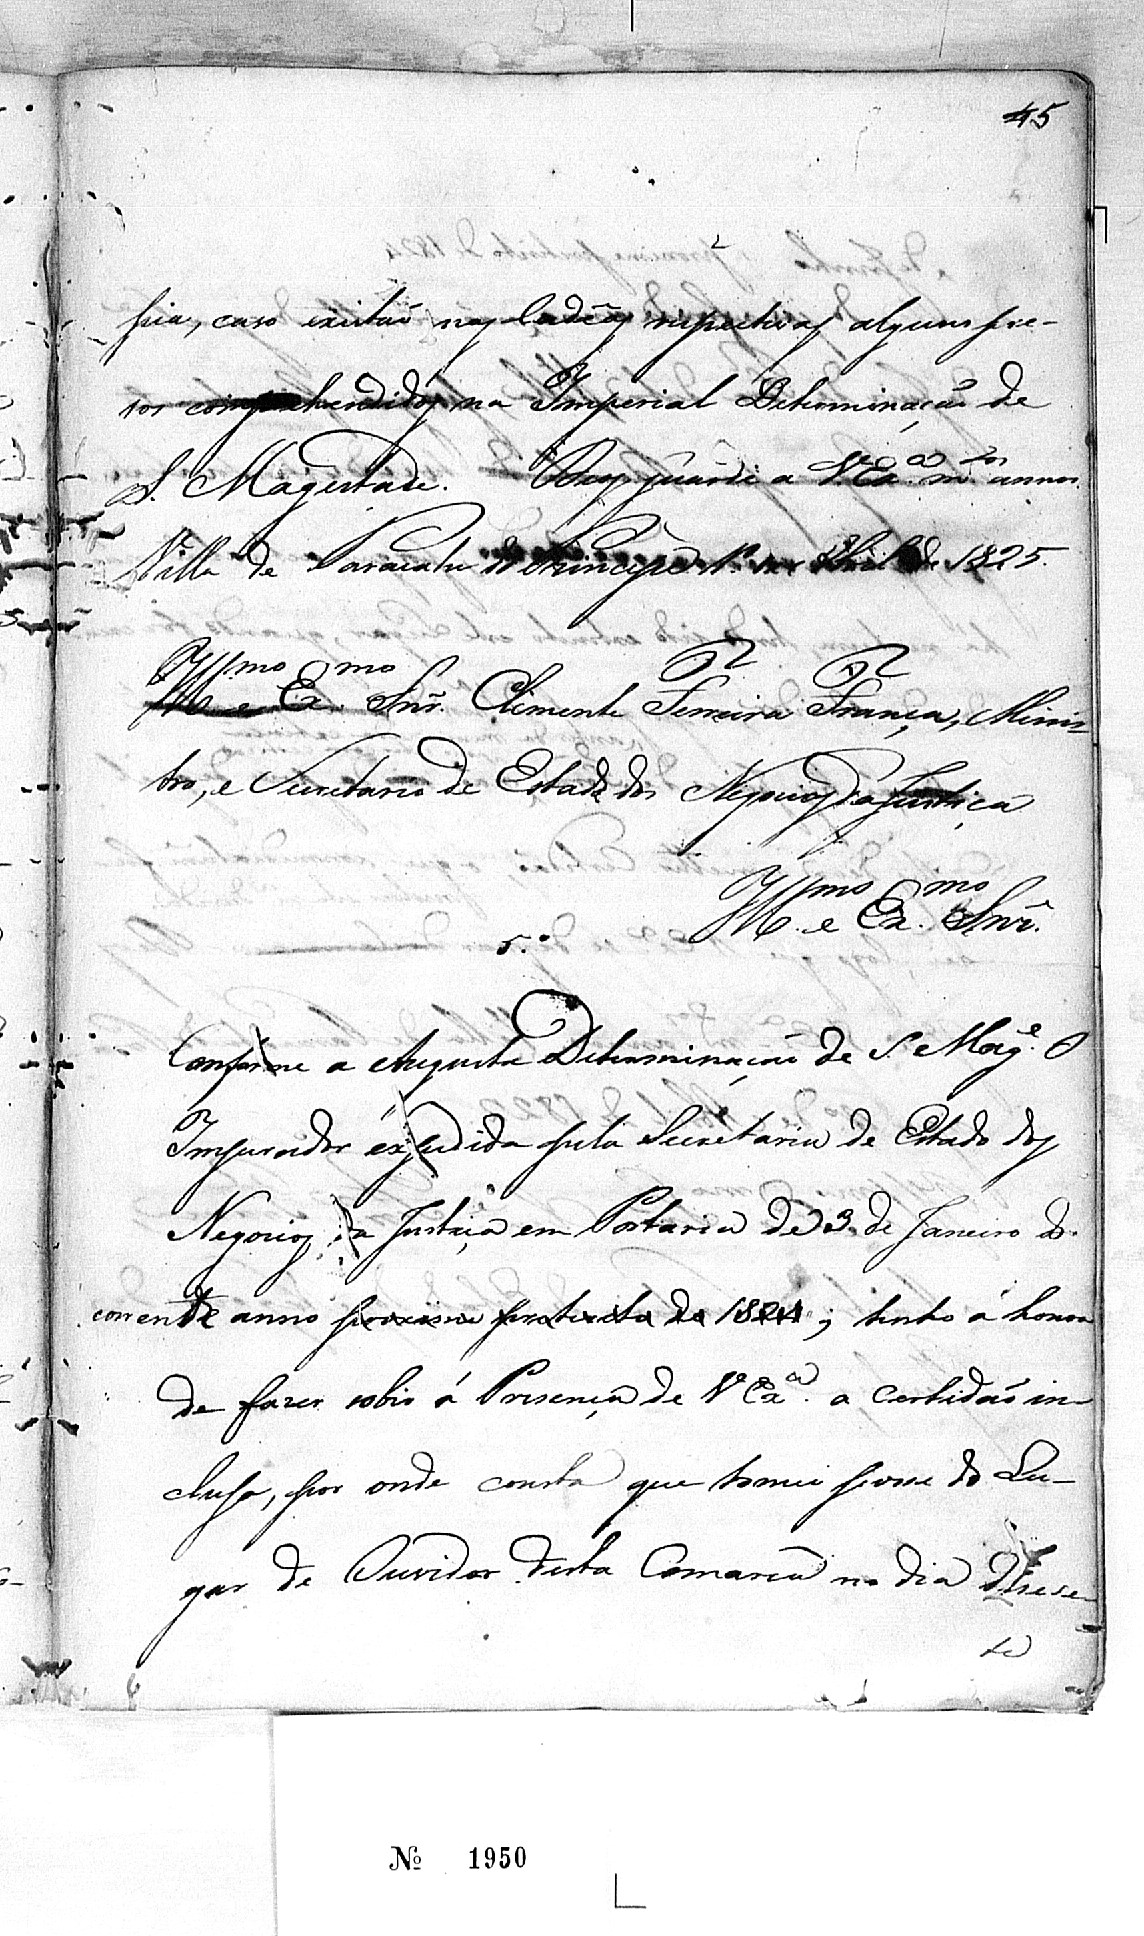 45
pia, caso existaõ nas Cadêas respectivas alguns pre-
sos comprehendidos na Imperial Determinação de
S. Magestade. Deos guarde a V. Ex.ª m.tos annos.
Villa de Paracatu do Principe 1.º de Abril de 1825.
Ill.mo e Ex.mo Snr. Clemente Ferreira França, Minis-
tro, e Secretario de Estado dos Negocios da Justiça
Ill.mo e Ex.mo Snr.
5.º
Conforme a Augusta Determinação de S. Mag.e O
Imperador expedida pela Secretaria de Estado dos
Negocios da Justiça em Portaria de 3 de Janeiro do
corrente anno proximo preterito de 1824; tenho a honra
de fazer sobir á Presença de V. Ex.ª a certidaõ in-
clusa, por onde consta que tomei posse do Lu-
gar de Ouvidor desta Comarca no dia
te
Nº 1950